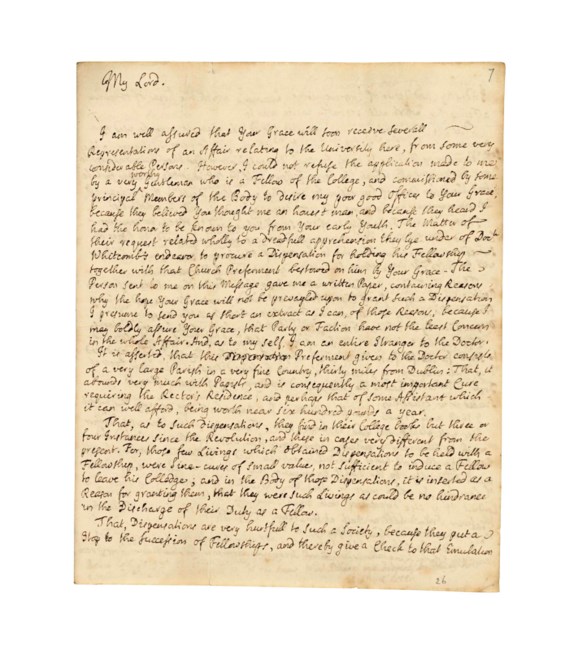 7
My Lord.
I am well assured that Your Grace will soon receive severall
Representations of an Affair relating to the University here, from some very
considerable Persons. However, I could not refuse the application made to me
by a very worthy Gentleman who is a Fellow of the College, and commissioned by some
principal Members of the Body to desire my good offices to Your Grace,
because they believed You thought me an honest man, and because they heard I
had the honor to be known to you from Your early Youth. The Matter of
their request related wholly to a dreadfull apprehension they lye under of Doctr
Whetcomb's endeavor to procure a Dispensation for holding his Fellowship
together with that Church Preferment bestowed on him by Your Grace. The
Person sent to me on this Message gave me a written Paper, containing Reasons
why they hope Your Grace will not be prevayled upon to grant such a Dispensation
I presume to send you as short an extract as I can, of those Reasons, because I
may boldly assure Your Grace, that Party or Faction have not the least Concern
in the whole Affair. And, as to my self, I am an entire Stranger to the Doctor.
It is asserted, that this Preferment given to the Doctor consists
of a very large Parish in a very fine Country, thirty miles from Dublin: That, it
abounds very much with Papists, and is consequently a most important Cure
requiring the Rector's Residence, and perhaps that of some Assistant which
it can well afford, being worth near six hundred pounds a year.
That, as to such Dispensations, they find in their College books but three or
four Instances since the Revolution, and these in cases very different from the
present. For, those few Livings which obtained Dispensations to be held with a
Fellowship, were Sine-cures of small value, not sufficient to induce a Fellow
to leave his Colledge; and in the Body of those Dispensations, it is inserted as a
Reason for granting them, that they were such Livings as could be no hindrance
in the Discharge of their Duty as a Fellow.
That, Dispensations are very hurtfull to such a Society, because they put a
Stop to the Succession of Fellowships, and thereby give a Check to that Emulation
26